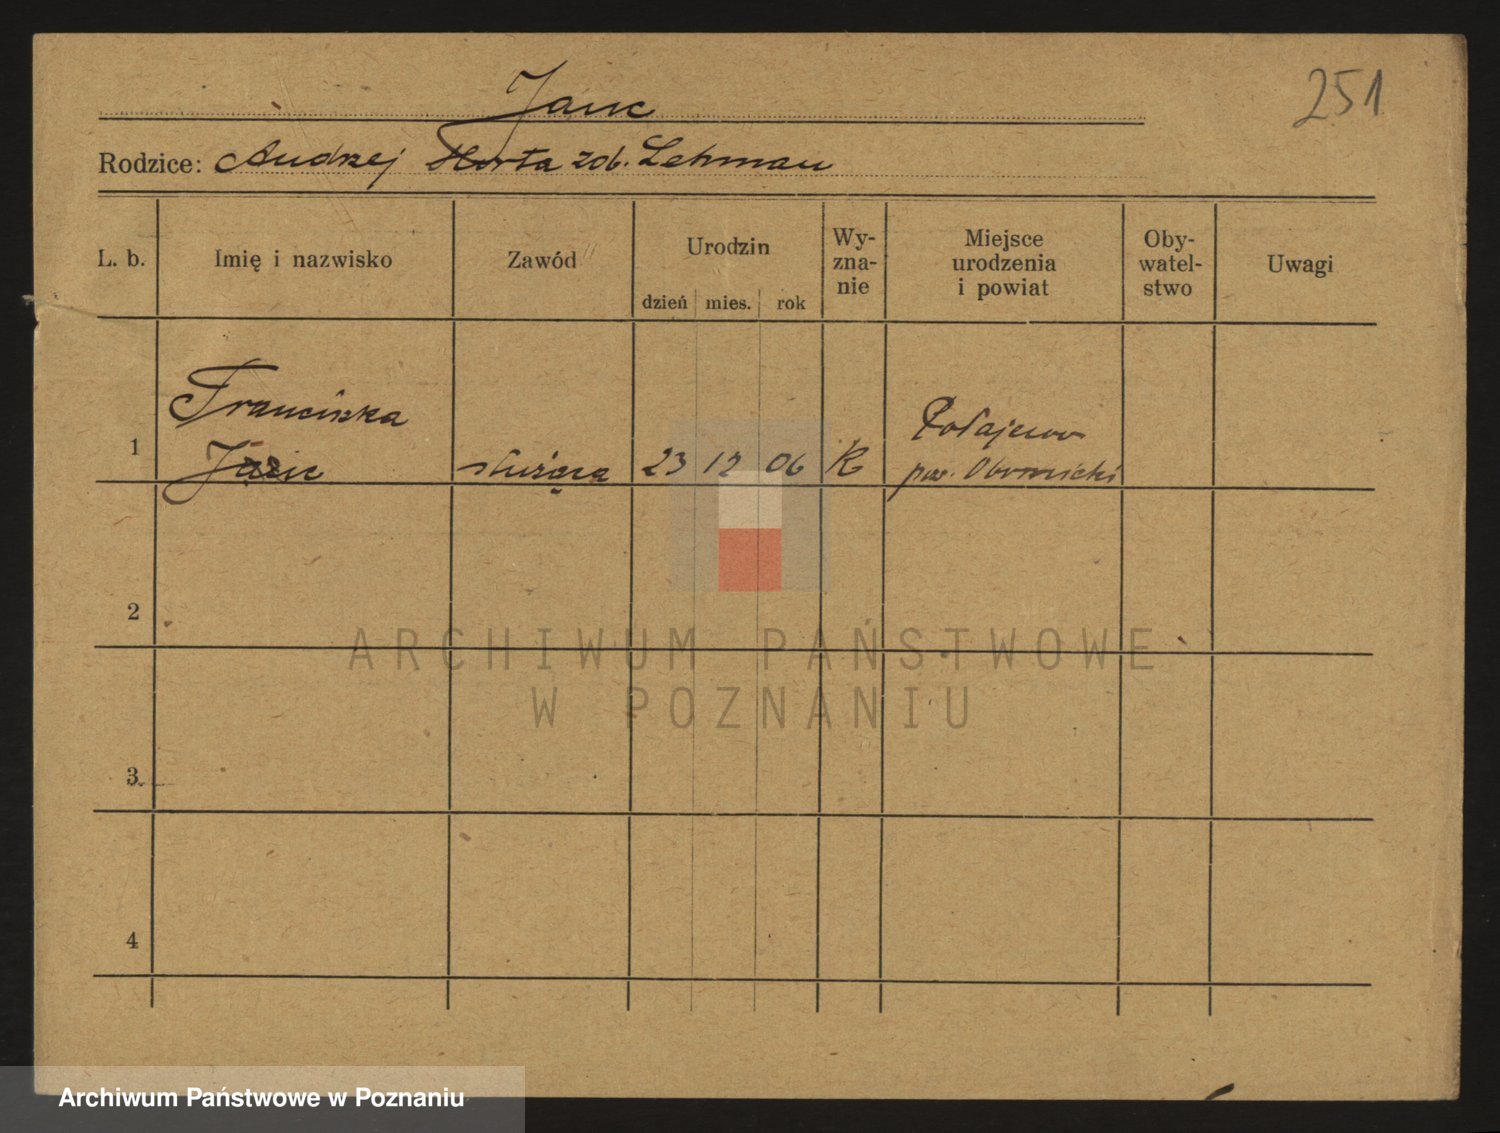 251
Janc
Rodzice: Andrzej Marta zdb. Lehman
L. b. Imię i nazwisko Zawód Urodzin Wy- Miejsce Oby- Uwagi
zna- urodzenia watel-
nie i powiat stwo
dzień mies. rok
Franciszka Połajewo
1 Janc służąca 23 12 06 K pow. Obornicki
2
ARCHIWUM PAŃSTWOWE
W POZNANIU
3
4
Archiwum Państwowe w Poznaniu